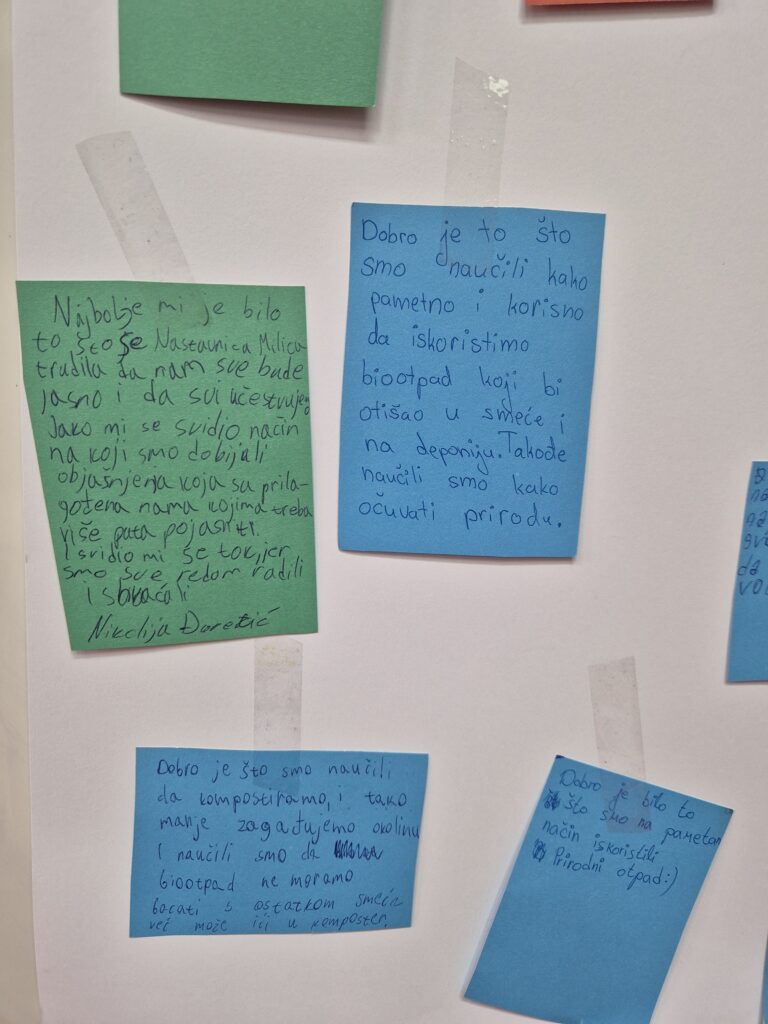 Najbolje mi je bilo
to što se Nastavnica Milica
trudila da nam sve bude
jasno i da svi učestvujemo
Jako mi se svidio način
na koji smo dobijali
objašnjenja koja su prila-
gođena nama kojima treba
više puta pojasniti.
I svidio mi se tok, jer
smo sve redom radili
i shvaćali
Đoretić
Dobro je to što
smo naučili kako
pametno i korisno
da iskoristimo
biootpad koji bi
otišao u smeće i
na deponiju. Takođe
naučili smo kako
očuvati prirodu.
Dobro je što smo naučili
da kompostiramo, i tako
manje zagađujemo okolinu
I naučili smo da
biootpad ne moramo
bacati s ostatkom smeća
već može ići u komposter.
Dobro je bilo to
što smo na pametan
način iskoristili
Prirodni otpad:)
da